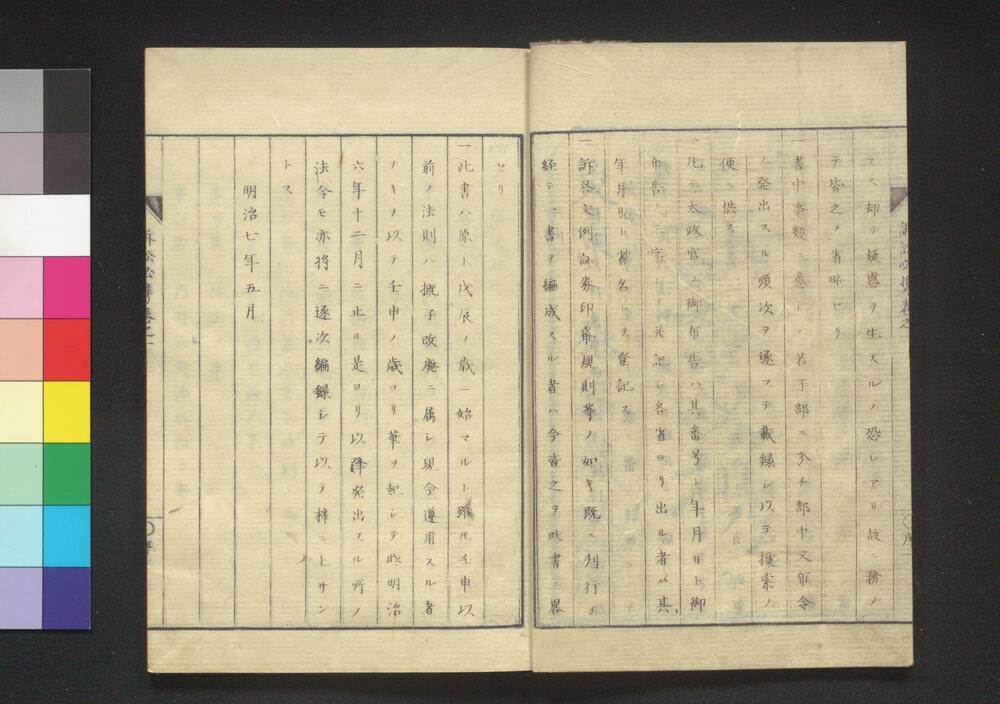 ラス却テ疑惑ヲ生スルノ恐レアリ故ニ務メ
テ皆之ヲ省略セリ
一書中事類ニ應シ若干部ニ分チ部中又布令
ノ発出スル順次ヲ逐フテ載録シ以テ捜索ノ
便ニ供ス
一凡テ太政官ノ御布告ハ其番号ト年月日ト御
布告ノ三字ヲ記シ各省ヨリ出ル者ハ其
年月日ト省名トヲ登記ス
一訴答文例証券印帋規則等ノ如キ既ニ刊行ヲ
経テ一書ヲ編成スル者ハ今皆之ヲ此書ニ畧
セリ
一此書ハ原ト戊辰ノ歳ニ始マルト雖モ壬申以
前ノ法則ハ概子改廃ニ属シ現今遵用スル者
ナキヲ以テ壬申ノ歳ヨリ筆ヲ起シテ昨明治
六年十二月ニ止ル是ヨリ以降発出スル所ノ
法令モ亦将ニ逐次編録シテ以テ梓ニ上サン
トス
明治七年五月